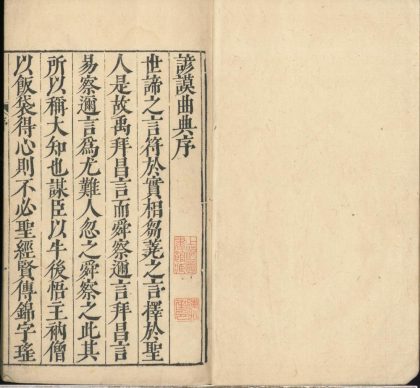 諺謨曲典序
世諦之言符於實相芻蕘之言擇於聖
人是故禹拜昌言而舜察邇言拜昌言
易察邇言為尤難人忽之舜察之此其
所以稱大知也謀臣以牛後悟王衲僧
以飯袋得心則不必聖經賢傳錦字瑤